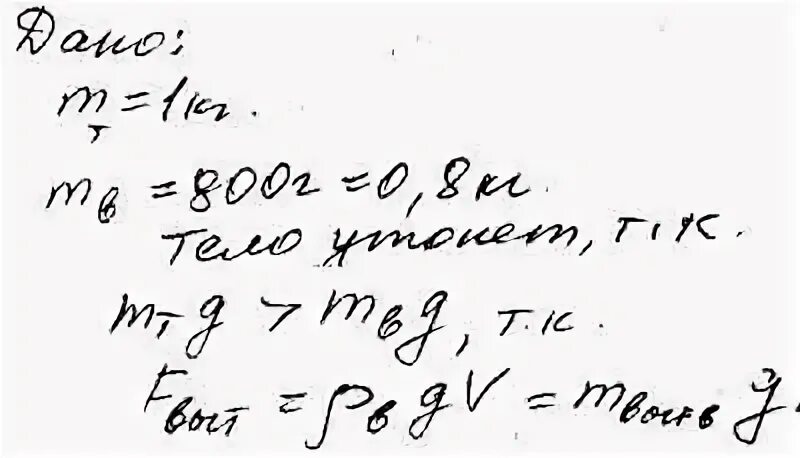 Дано:
mт = 1кг.
mв = 800г = 0,8кг.
Тело утонет, т.к.
mтg > mвg, т.к.
Fвыт = ρвgV = mвытв g.